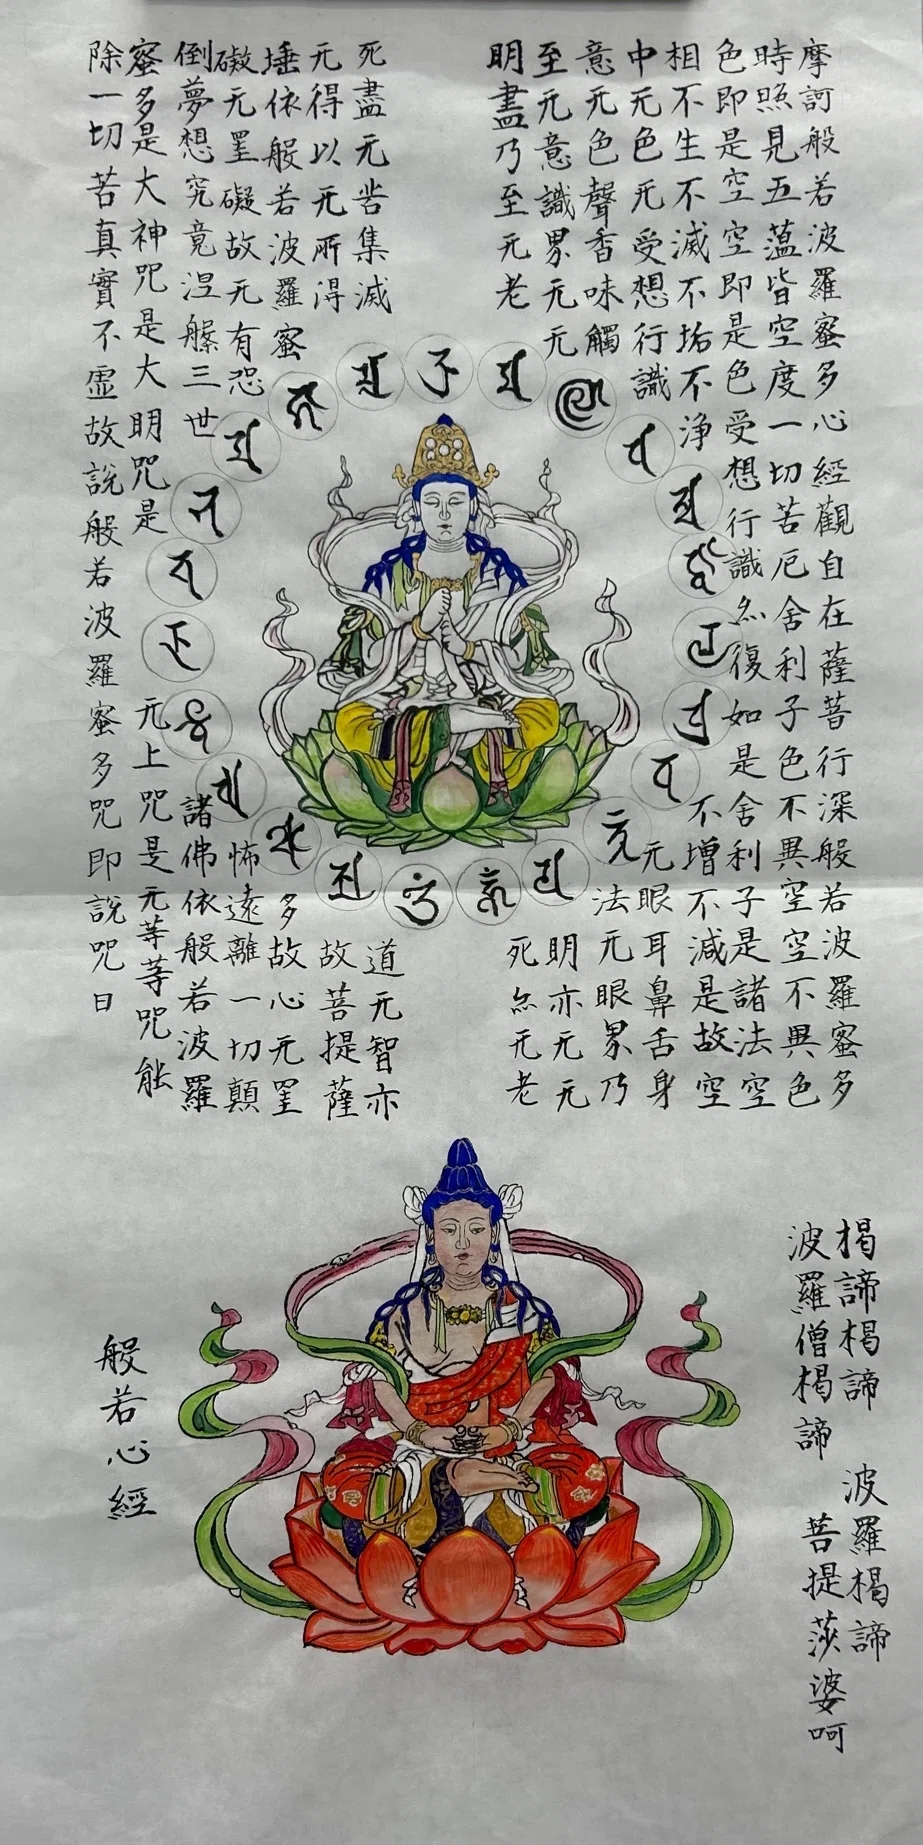 摩訶般若波羅蜜多心經觀自在薩菩行深般若波羅蜜多
時照見五蘊皆空度一切苦厄舍利子色不異空空不異色
色即是空空即是色受想行識亦復如是舍利子是諸法空
相不生不滅不垢不浄 不增不減是故空
中无色无受想行識 无眼耳鼻舌身
意无色聲香味觸 法无眼界乃
至无意識界无无 明亦无无
明盡乃至无老 死亦无老
死盡无苦集滅 道无智亦
无得以无所得 故菩提薩
埵依般若波羅蜜 多故心无罣
礙无罣礙故无有恐 怖遠離一切顛
倒夢想究竟涅槃三世 諸佛依般若波羅
蜜多是大神咒是大明咒是 无上咒是无等等咒能
除一切苦真實不虛故說般若波羅蜜多咒即說咒曰
楬諦楬諦 波羅楬諦
波羅僧楬諦 菩提莎婆呵
般若心經